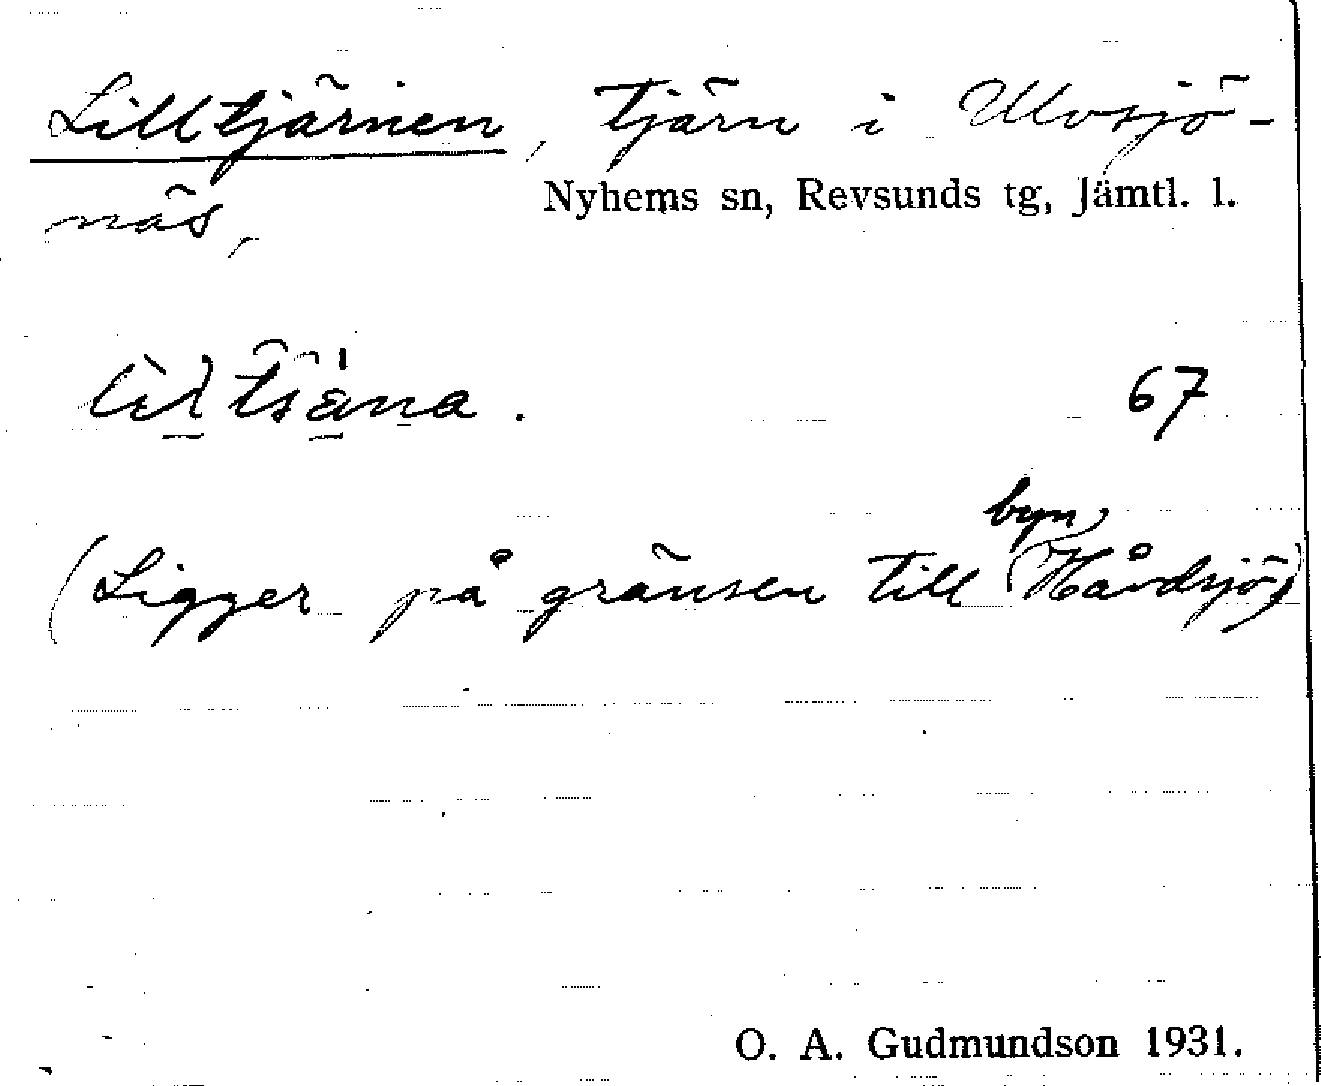 Lilltjärnen, tjärn i Ulvsjö-
Nyhems sn, Revsunds tg, Jämtl. l.
näs,
67
byn
(Ligger på gränsen till Håvdsjö)
O. A. Gudmundson 1931.